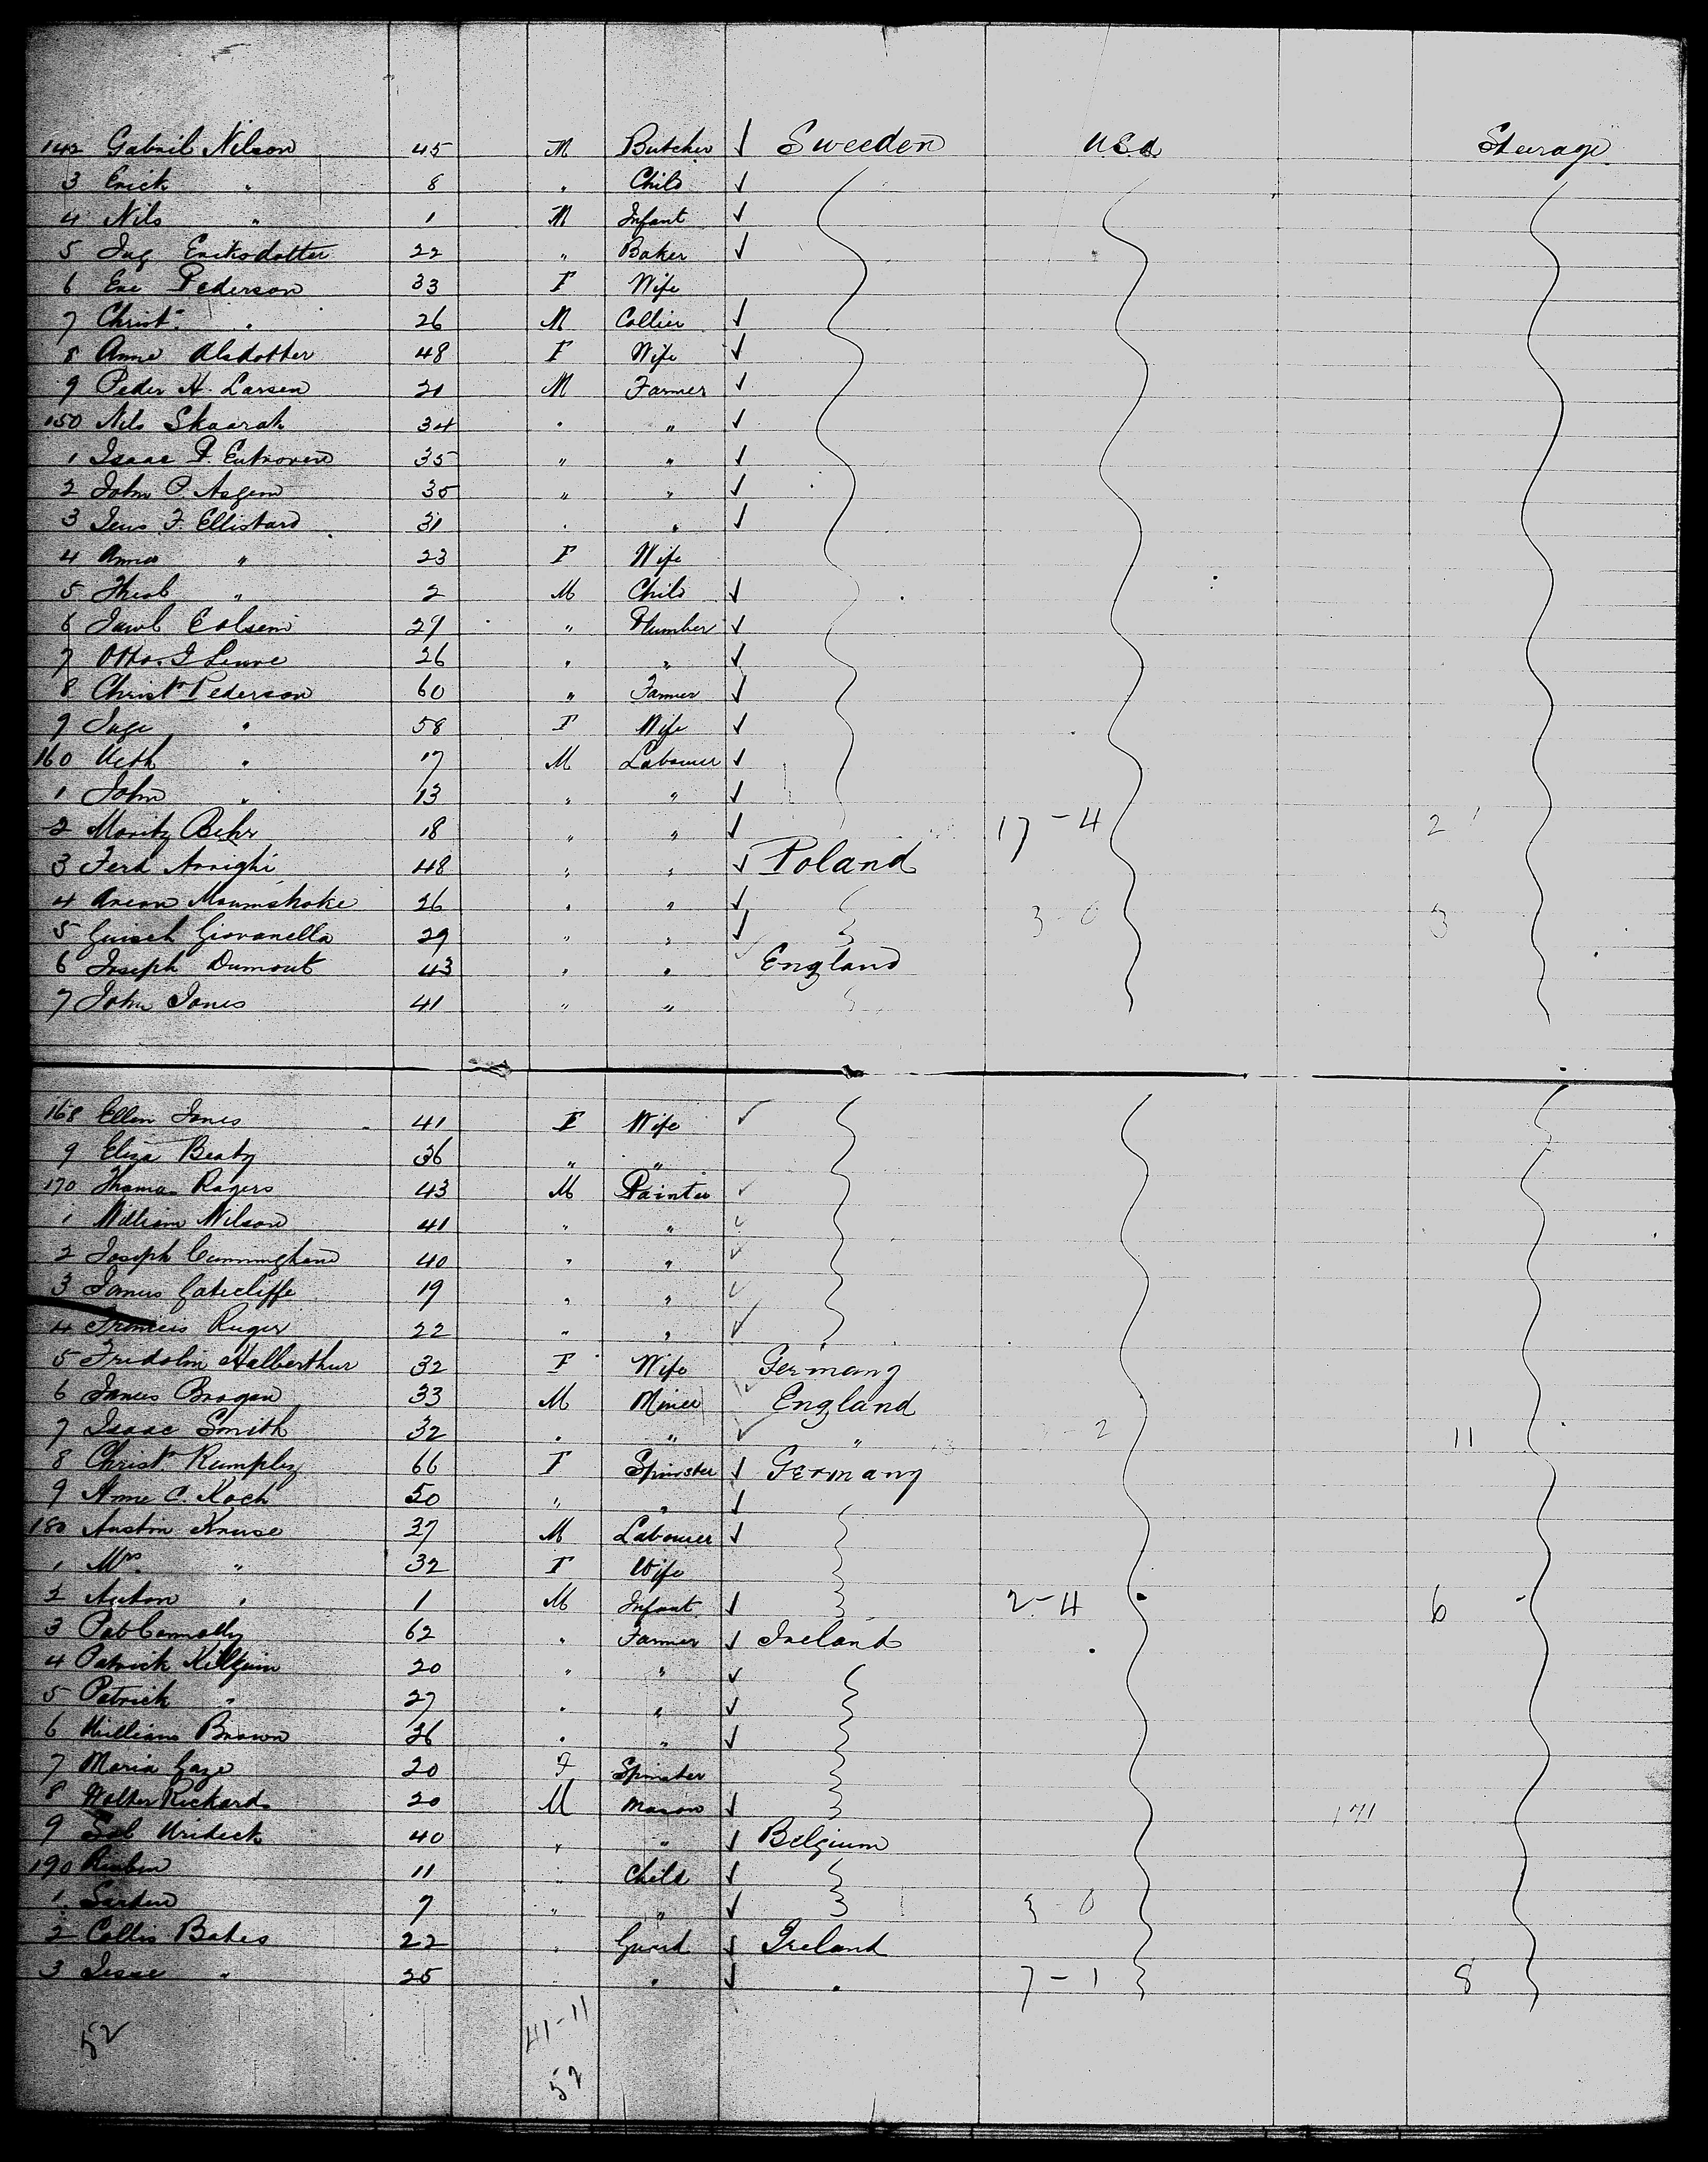 142 Gabriel Nilson 45 M Butcher √ Sweeden USA Steerage
3 Erick " 8 " Child √
4 Nils " 1 M Infant √
5 Ing Ericksdotter 22 " Baker √
6 Eve Pederson 33 F Wife
7 Christ " 26 M Collier √
8 Anne Alsdotter 48 F Wife √
9 Peder H. Larsen 21 M Farmer √
150 Nils Skaarah 34 " " √
1 Isaac P. 35 " " √
2 John P. Asgem 35 " " √
3 Jens F. Ellistard 31 " " √
4 Anna " 23 F Wife
5 " 2 M Child √
6 Eolsem 29 " Plumber √
7 Otto. 26 " " √
8 Christr Pederson 60 " Farmer √
9 Inge " 58 F Wife √
160 " 17 M Labourer √
1 John " 13 " " √
2 Moritz Behr 18 " " √ 17-4 2
3 Ferd Arrighi 48 " " √ Poland
4 26 " " √ 3-0 3
5 Giovanella 29 " " √
6 Joseph Dumont 43 " " England
7 John Jones 41 " "
168 Ellen Jones 41 F Wife √
9 Eliza Beaty 36 " "
170 Thomas Rogers 43 M Painter √
1 William Wilson 41 " " √
2 Joseph Cunningham 40 " " √
3 James Gatecliffe 19 " " √
4 Francis Ruger 22 " " √
5 Fridolin Halberthur 32 F Wife Germany
6 James Brogan 33 M Miner √ England
7 Isaac Smith 32 " " √ " 2 11
8 Christ. Rumpley 66 F Spinster √ Germany
9 Anne C. Koch 50 " " √
180 Austin Kruse 37 M Labourer √
1 Mrs. " 32 F Wife
2 " 1 M Infant √ 2-4 6
3 Pat Connolly 62 " Farmer √ Ireland
4 Patrick Kilguin 20 " " √
5 Patrick " 27 " " √
6 William Brown 26 " " √
7 Maria Gaze 20 F Spinster
8 Walter Richards 20 M Mason √ 171
9 Sel 40 " " √ Belgium
190 Reuben 11 " Child √
1 7 " " √ 3-0
2 Collis Bates 22 " Guard √ Ireland
3 Jesse " 25 " " √ " 7-1 8
52 41-11
52